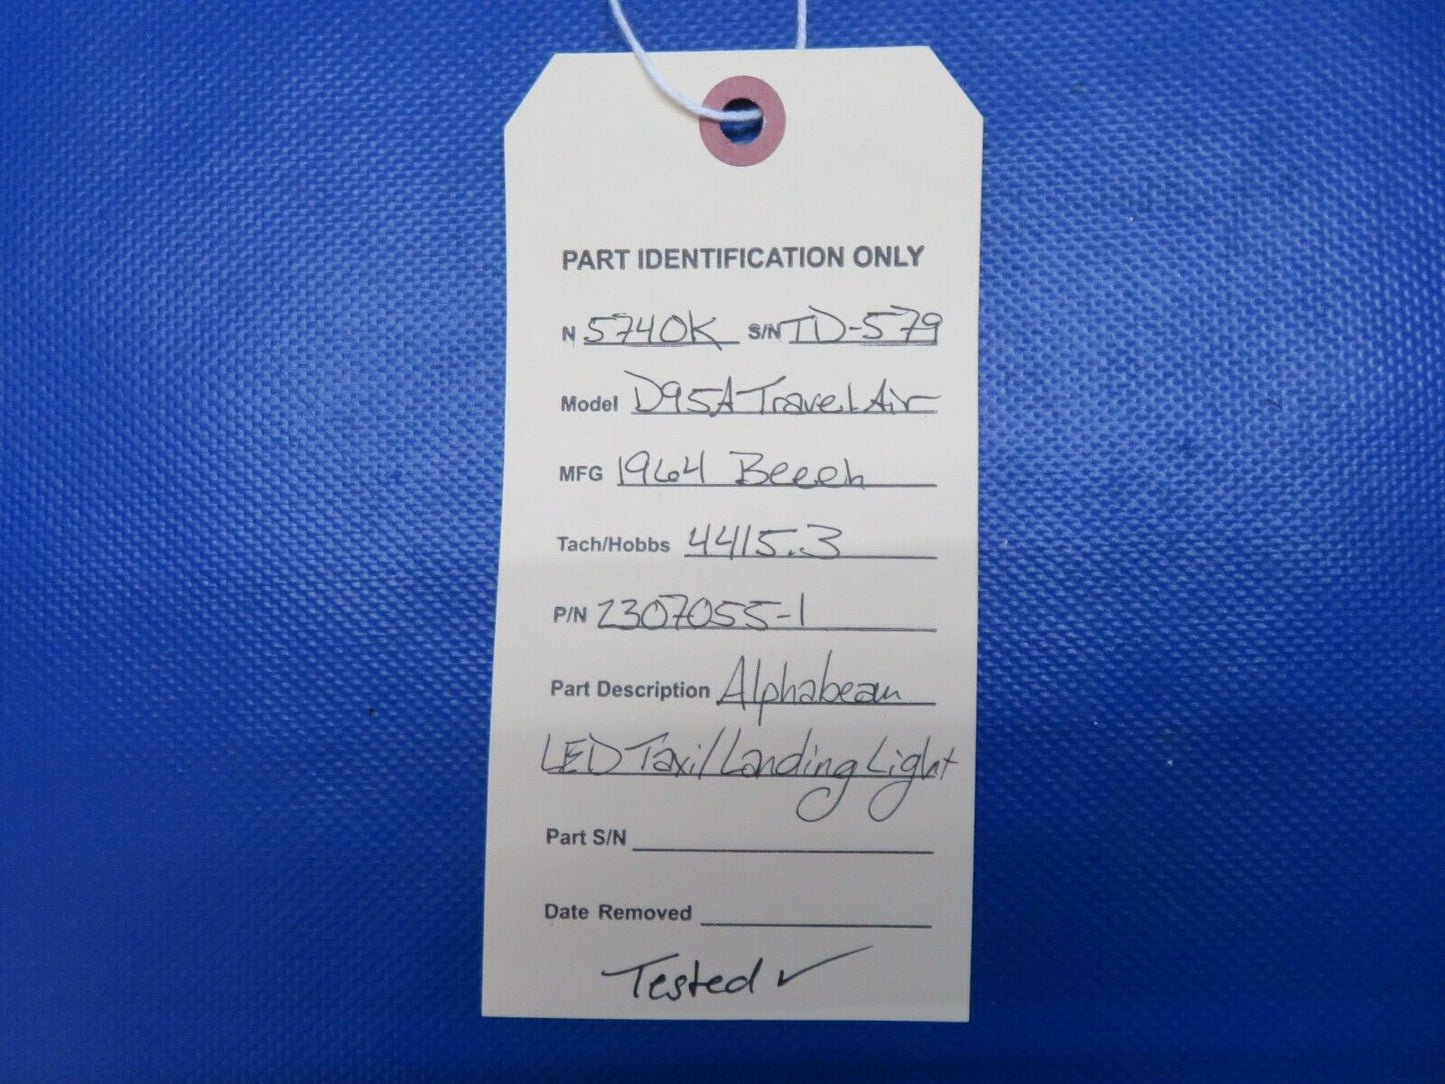 PART IDENTIFICATION ONLY
N 5740K S/N TD-579
Model D95A Travel Air
MFG 1964 Beech
Tach/Hobbs 4415.3
P/N 2307055-1
Part Description Alphabeam
LED Taxi/Landing Light
Part S/N
Date Removed
Tested ✓